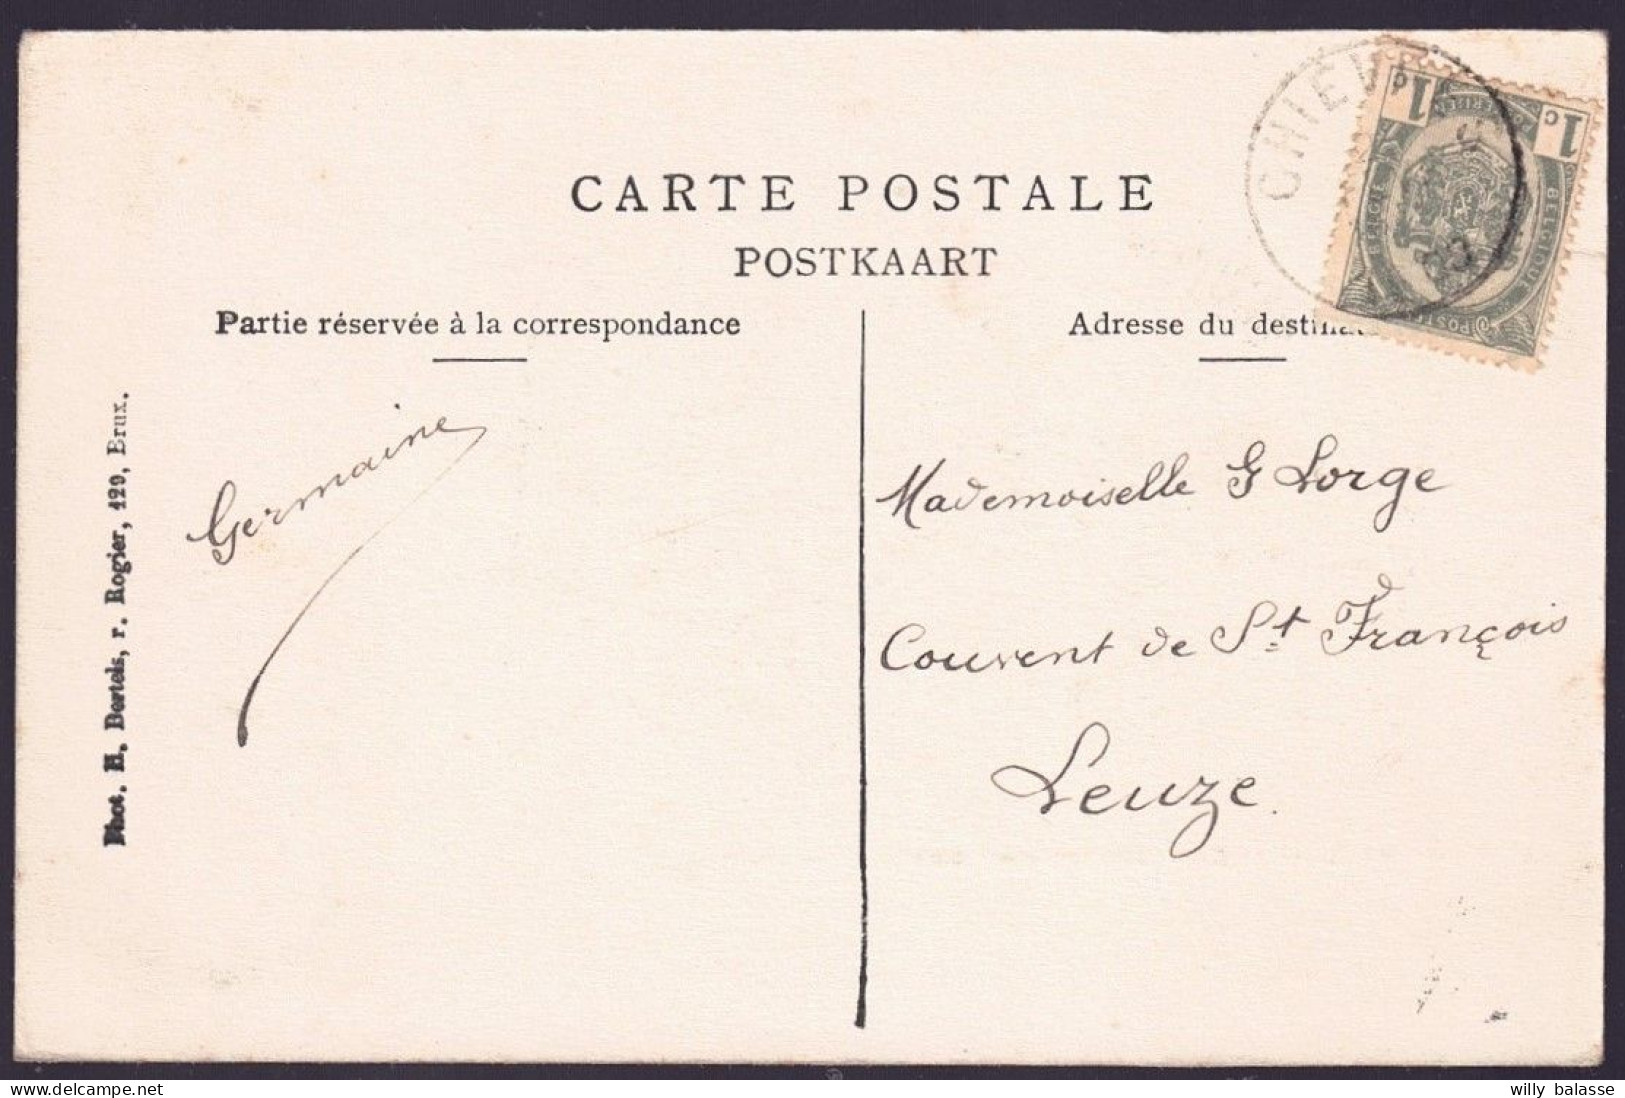 CARTE POSTALE
POSTKAART
Partie réservée à la correspondance
Adresse du
Phot. H. Bertels, r. Rogier, 129, Brux.
Germaine
Mademoiselle G Lorge
Couvent de St François
Leuze.
1c
1
BELGIQUE
BELGIE
willy balasse